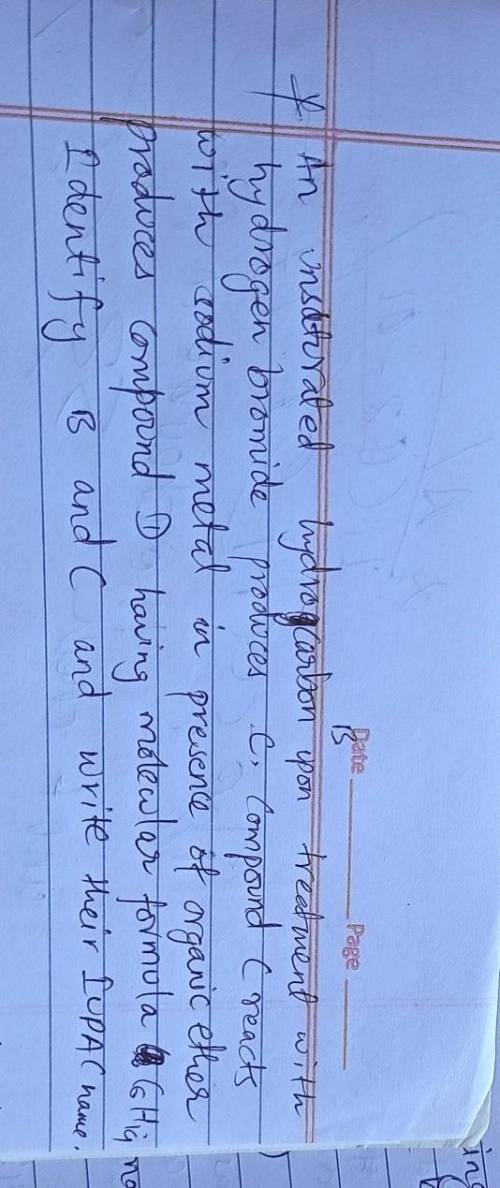 Date Page
B
* An unsaturated hydrocarbon upon treatment with
hydrogen bromide produces C, Compound C reacts
with sodium metal in presence of organic ether
produces compound D having molecular formula C6H14
Identify B and C and write their IUPAC name.